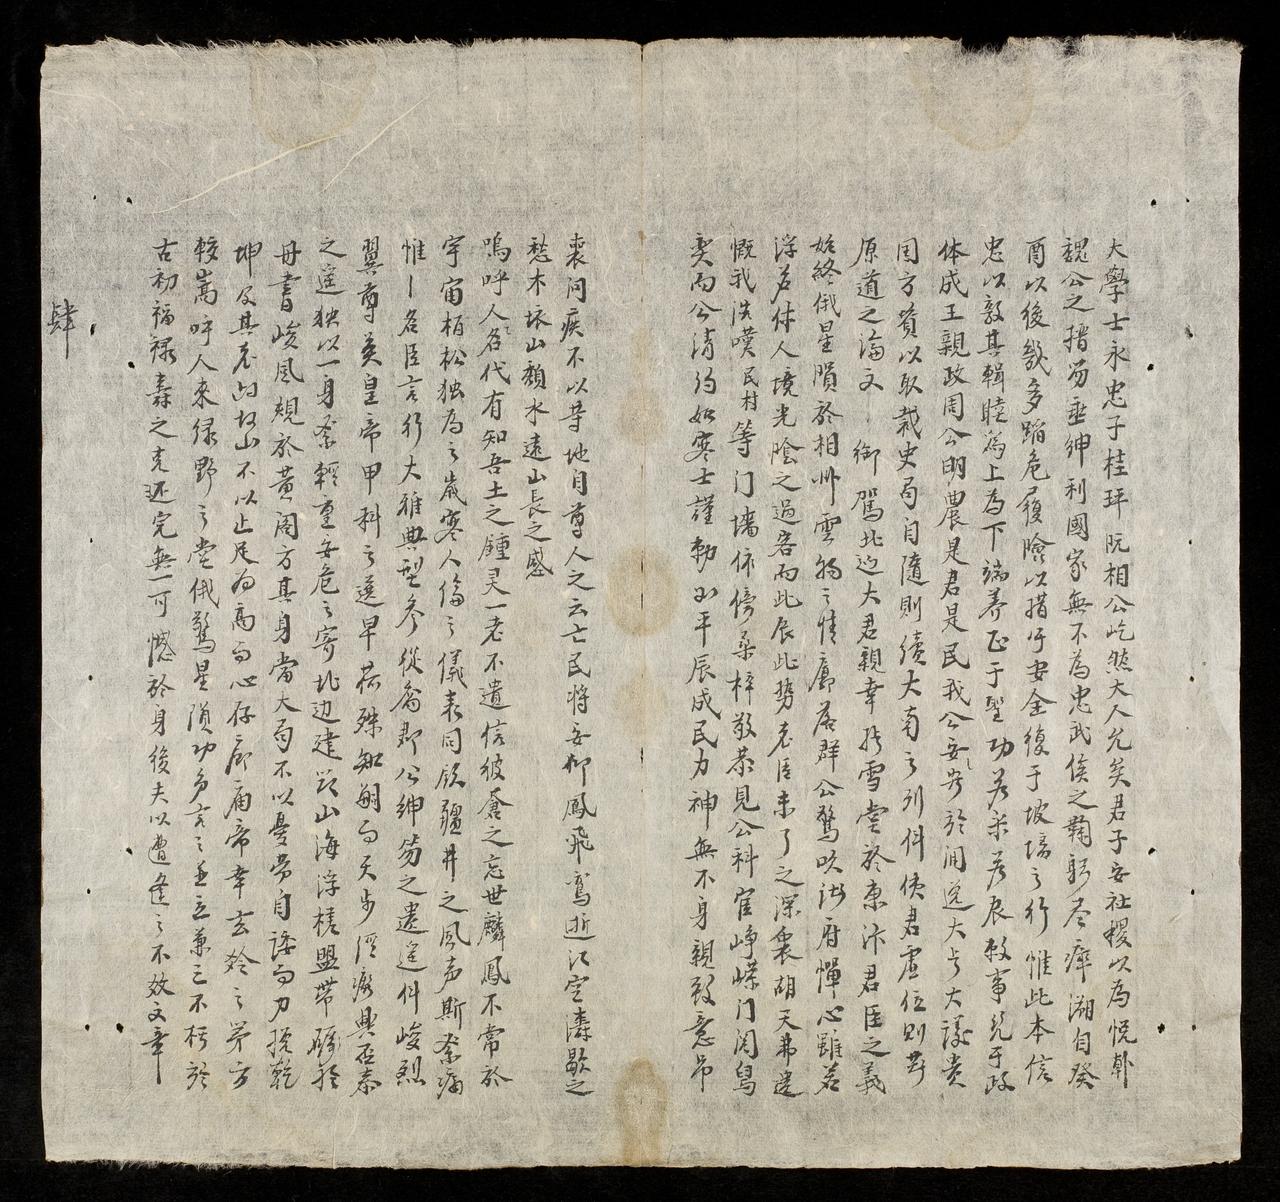 大學士永忠子桂玶阮相公屹然大人允矣君子安社稷以為悅韓
魏公之搢笏垂紳利國家無不為忠武侯之鞠躬尽瘁溯自癸
酉以後幾多蹈危履險以措于安全復于坡璘之行惟此本信
忠以敦其輯睦為上為下端养正于聖功若采若辰敕事兢于政
体成王親政周公明農是君是民我公安安於同逸大步大議贵
国方資以取裁史局自隨則續大南之列件使君虚位則昇
原道之論文御駕北巡大君親幸於雪堂於東汴君臣之義
始終俄星隕於相州雲物之情廓落群公驚吹浙府憚心雖若
浮名休人境光陰之過客而此辰此势老臣未了之深衷胡天弗遺
慨我洪嘆民村等门墻依傍桑梓敬恭見公科宦崢嶸门闼舄
奕而公清約如寒士謹勅如平辰成民力神無不身親致意吊
喪问疾不以等地自尊人之云亡民将安仰鳳飛鸞逝江空濤歇之
愁木坏山頹水遠山長之感
嗚呼人名代有知吾土之鍾灵一老不遺信彼蒼之忘世麟鳳不常於
宇宙栢松独為之歲寒人倫之儀表同欣疆井之風声斯泰痛
惟名臣言行大雅典型参從裔郡公紳笏之遺莲件峻烈
翼尊英皇帝甲科之選早荷殊知嗣而天步經療興否泰
之運独以一身系輕重安危之寄北边建節山海浮槎盟带礪於
丹書峻風規於黄阁方其身當大局不以憂劳自諉而力挽乾
坤及其老向故山不以止足为高而心存廊庙帝幸玄龄之第方
較嵩呼人來绿野之堂俄驚星隕功名言之並立兼三不朽於
古初福禄壽之克还完無一可憾於身後夫以遭逢之不效文章
肆